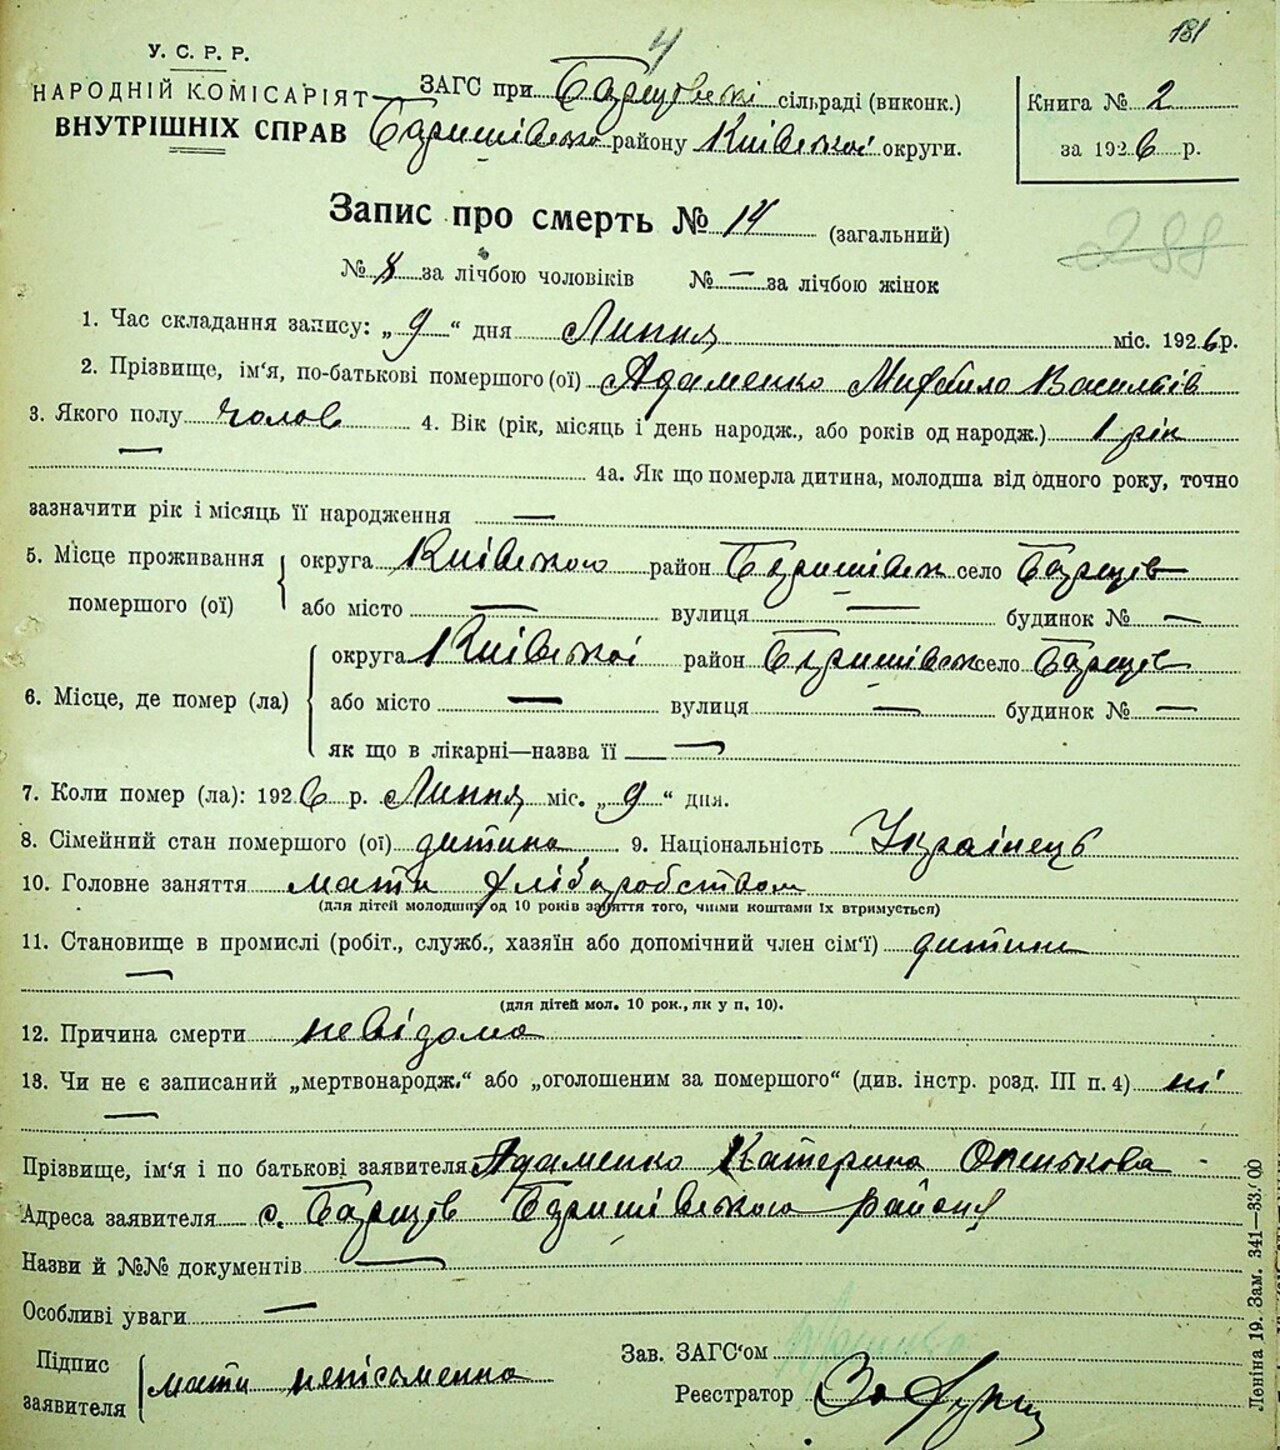 181
4
У. С. Р. Р.
НАРОДНІЙ КОМІСАРІЯТ
ВНУТРІШНІХ СПРАВ
ЗАГС при сільраді (виконк.)
району Київської округи.
Книга № 2
за 1926 р.
Запис про смерть № 14 (загальний)
288
№ 8 за лічбою чоловіків № — за лічбою жінок
1. Час складання запису: „ 9 “ дня Липня міс. 1926 р.
2. Прізвище, ім‘я, по-батькові помершого (ої) Адаменко Михайло Васильів
3. Якого полу чолов 4. Вік (рік, місяць і день народж., або років од народж.) 1 рік
—
4а. Як що померла дитина, молодша від одного року, точно
зазначити рік і місяць її народження —
5. Місце проживання помершого (ої)
округа Київського район Баришівськ село Борщів
або місто — вулиця — будинок № —
6. Місце, де помер (ла)
округа Київської район Баришівськ село Борщів
або місто — вулиця — будинок № —
як що в лікарні—назва її —
7. Коли помер (ла): 1926 р. Липня міс. „ 9 “ дня.
8. Сімейний стан помершого (ої) дитина 9. Національність Українець
10. Головне заняття мати хліборобством
(для дітей молодших од 10 років заняття того, чиїми коштами їх втримується)
11. Становище в промислі (робіт., служб., хазяїн або допомічний член сім‘ї) дитина
—
(для дітей мол. 10 рок., як у п. 10).
12. Причина смерти невідома
13. Чи не є записаний „мертвонародж.“ або „оголошеним за помершого“ (див. інстр. розд. III п. 4) ні
—
Прізвище, ім‘я і по батькові заявителя Адаменко Катерина
Адреса заявителя с. Борщів Баришівського району
Назви й №№ документів —
Особливі уваги —
Підпис заявителя мати неписьменна
Зав. ЗАГС‘ом
Реєстратор
Леніна 19. Зам. 341—33.000